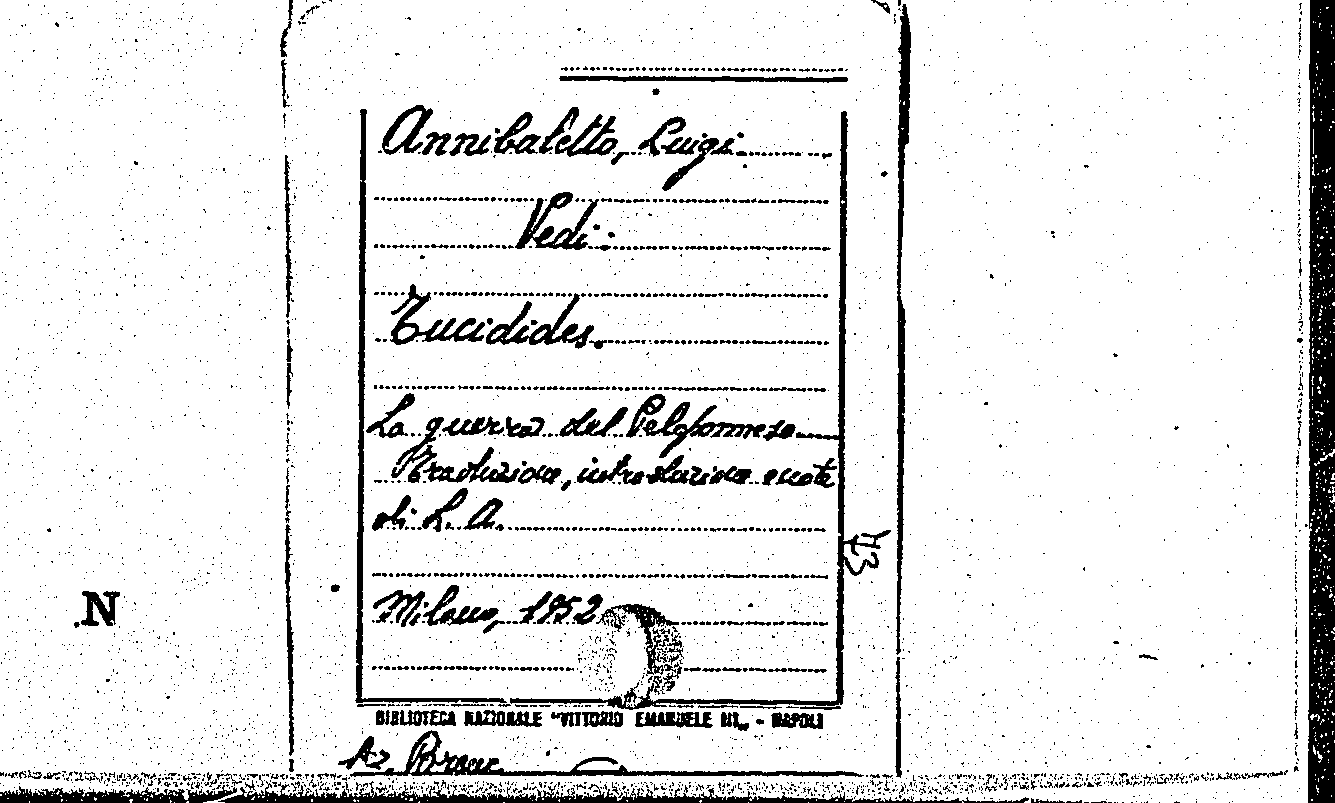 Annibaletto, Luigi.
Vedi:
Tucidides.
La guerra del Peloponneso
Traduzione, introduzione e note
di L. A.
Milano, 1952
N
BIBLIOTECA NAZIONALE "VITTORIO EMANUELE III„ - NAPOLI